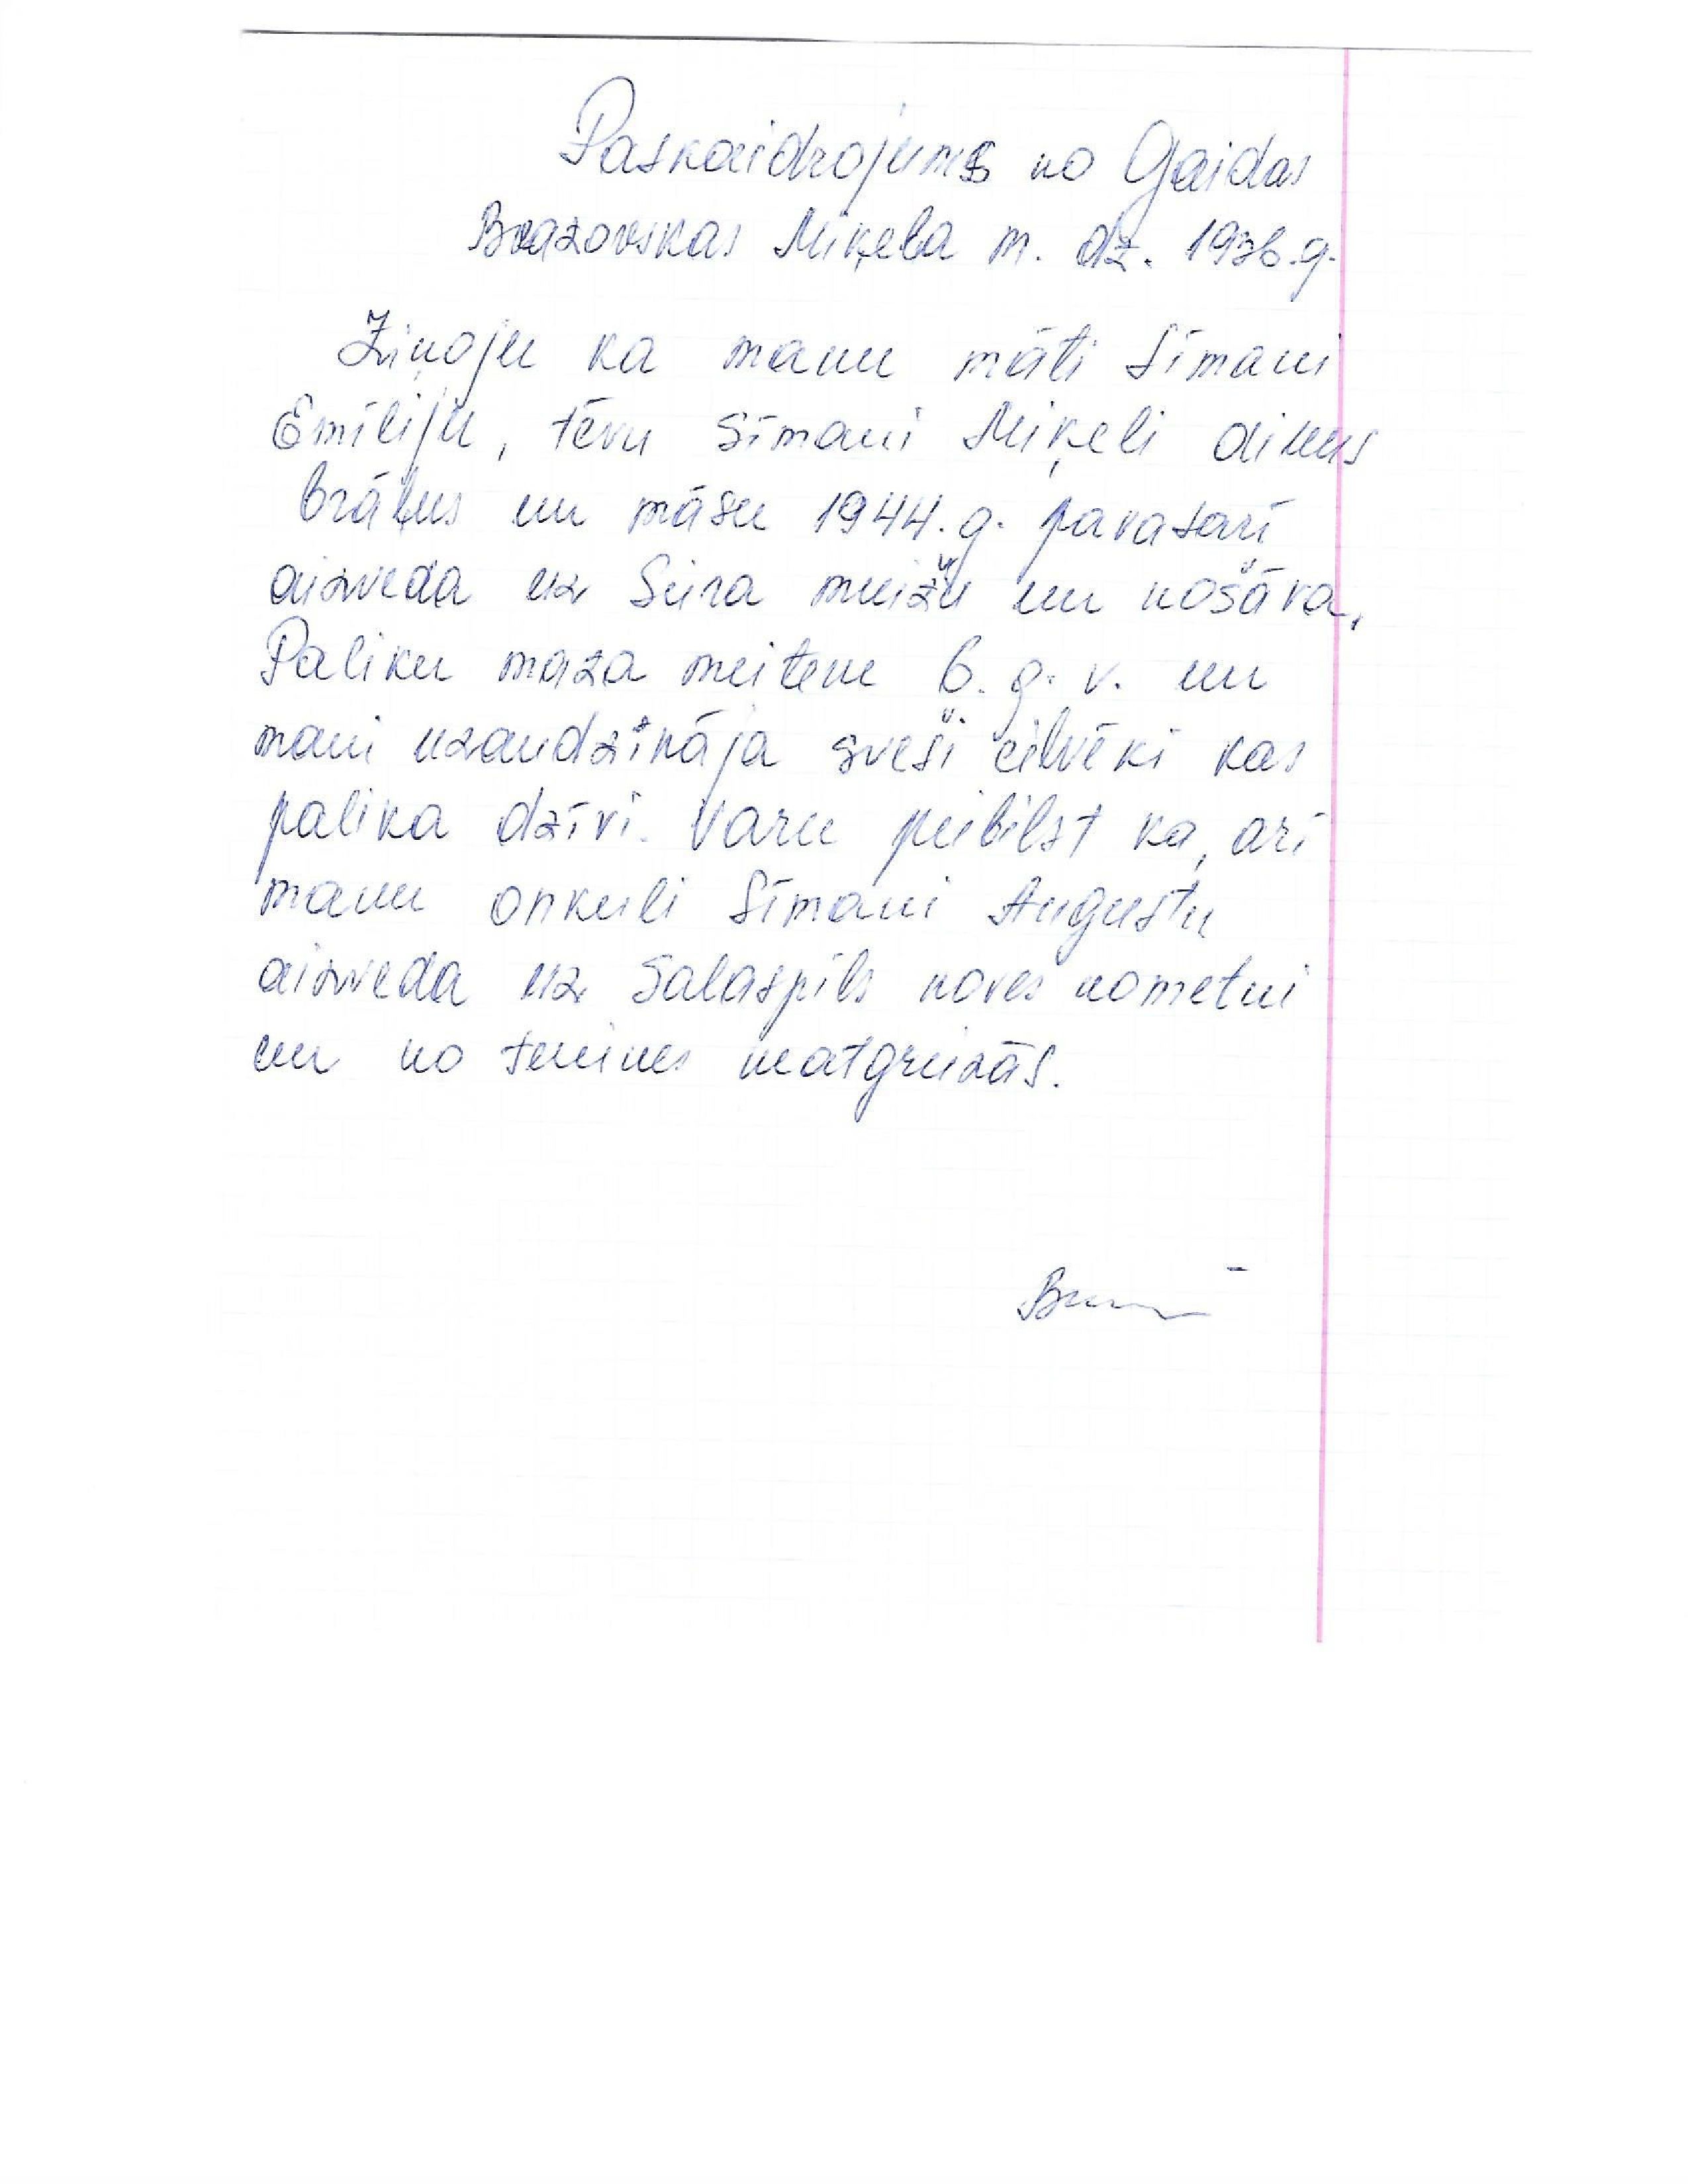 Paskaidrojums no Gaidas
Brazovskas Miķeļa m. dz. 1936.g.
Ziņoju ka manu māti Sīmani
Emīliju, tēvu Sīmani Miķeli divus
brāļus un māsu 1944.g. pavasarī
aizveda uz Sūra muižu un nošāva.
Paliku maza meitene 6.g.v. un
mani uzaudzināja sveši cilvēki kas
palika dzīvi. Varu piebilst ka, arī
manu onkuli Sīmani Augustu
aizveda uz Salaspils noves nometni
un no turienes neatgriezās.